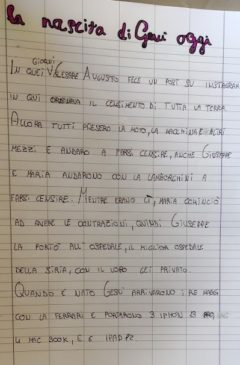 La nascita di Gesù oggi
IN QUEI GIORNI CESARE AUGUSTO FECE UN POST SU INSTAGRAM
IN QUI ORDINAVA IL CENSIMENTO DI TUTTA LA TERRA.
ALLORA TUTTI PRESERO LA MOTO, LA MACCHINA E ALTRI
MEZZI E ANDARO A FARSI CENSIRE, ANCHE GIUSEPPE
E MARIA ANDARONO CON LA LAMBORGHINI A
FARSI CENSIRE. MENTRE ERANO LÌ, MARIA COMINCIÒ
AD AVERE LE CONTRAZIONI, QUINDI GIUSEPPE
LA PORTÒ ALL'OSPEDALE, IL MIGLIOR OSPEDALE
DELLA SIRIA, CON IL LORO JET PRIVATO.
QUANDO È NATO GESÙ ARRIVARONO I RE MAGI
CON LA FERRARI E PORTARONO 3 IPHON
MAC BOOK, E IPAD